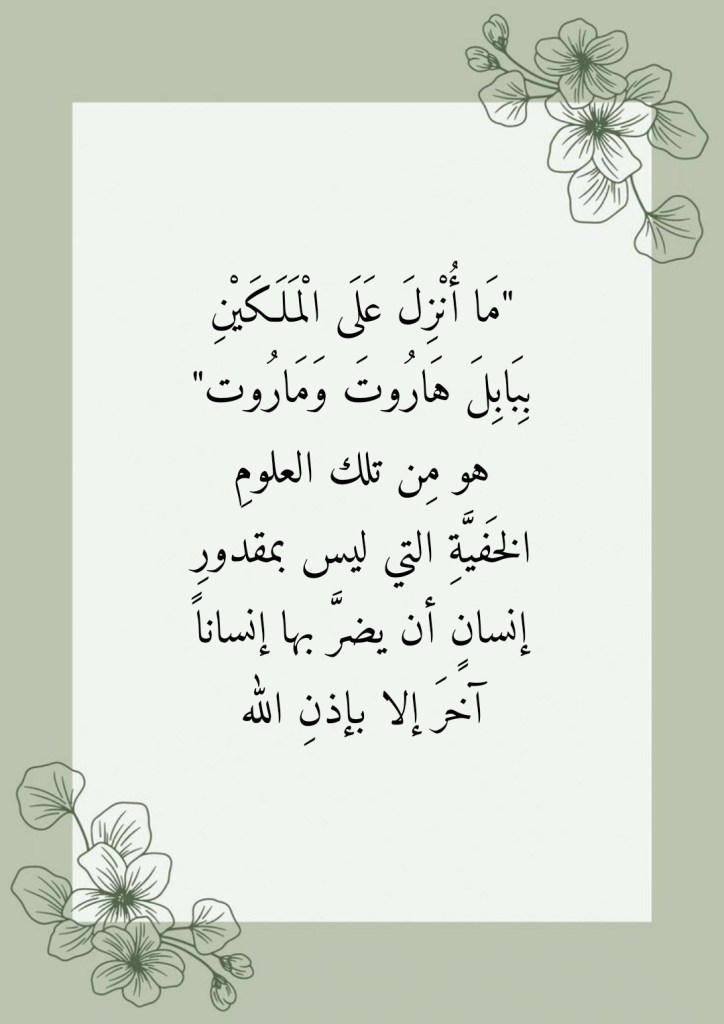 "مَا أُنْزِلَ عَلَى الْمَلَكَيْنِ
بِبَابِلَ هَارُوتَ وَمَارُوت"
هو مِن تلك العلومِ
الخَفيَّةِ التي ليس بمقدورِ
إنسانٍ أن يضرَّ بها إنساناً
آخرَ إلا بإذنِ الله